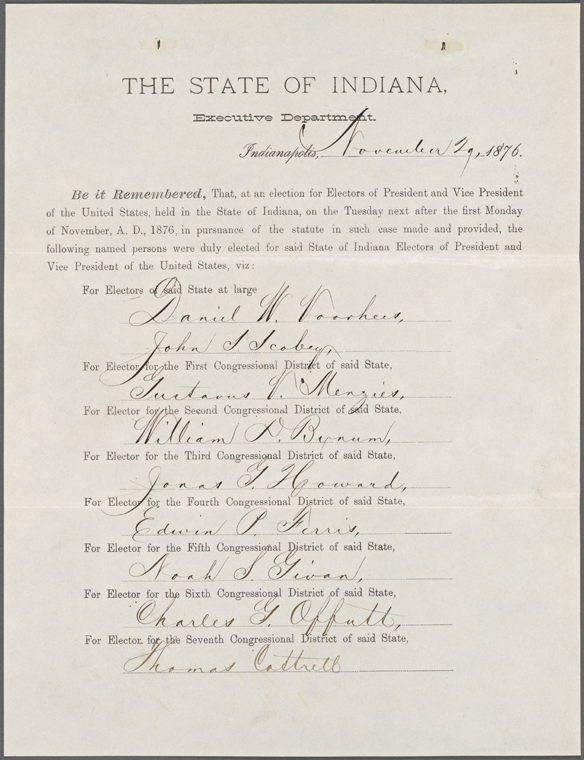 THE STATE OF INDIANA,
Executive Department.
Indianapolis, November 29, 1876.
Be it Remembered, That, at an election for Electors of President and Vice President
of the United States, held in the State of Indiana, on the Tuesday next after the first Monday
of November, A. D., 1876, in pursuance of the statute in such case made and provided, the
following named persons were duly elected for said State of Indiana Electors of President and
Vice President of the United States, viz:
For Electors of said State at large
Daniel W. Voorhees,
John S. Scobey,
For Elector for the First Congressional District of said State,
Gustavus V. Menzies,
For Elector for the Second Congressional District of said State,
William D. Bynum,
For Elector for the Third Congressional District of said State,
Jonas G. Howard,
For Elector for the Fourth Congressional District of said State,
Edwin P. Ferris,
For Elector for the Fifth Congressional District of said State,
Noah S. Givan,
For Elector for the Sixth Congressional District of said State,
Charles G. Offutt,
For Elector for the Seventh Congressional District of said State,
Thomas Cottrell